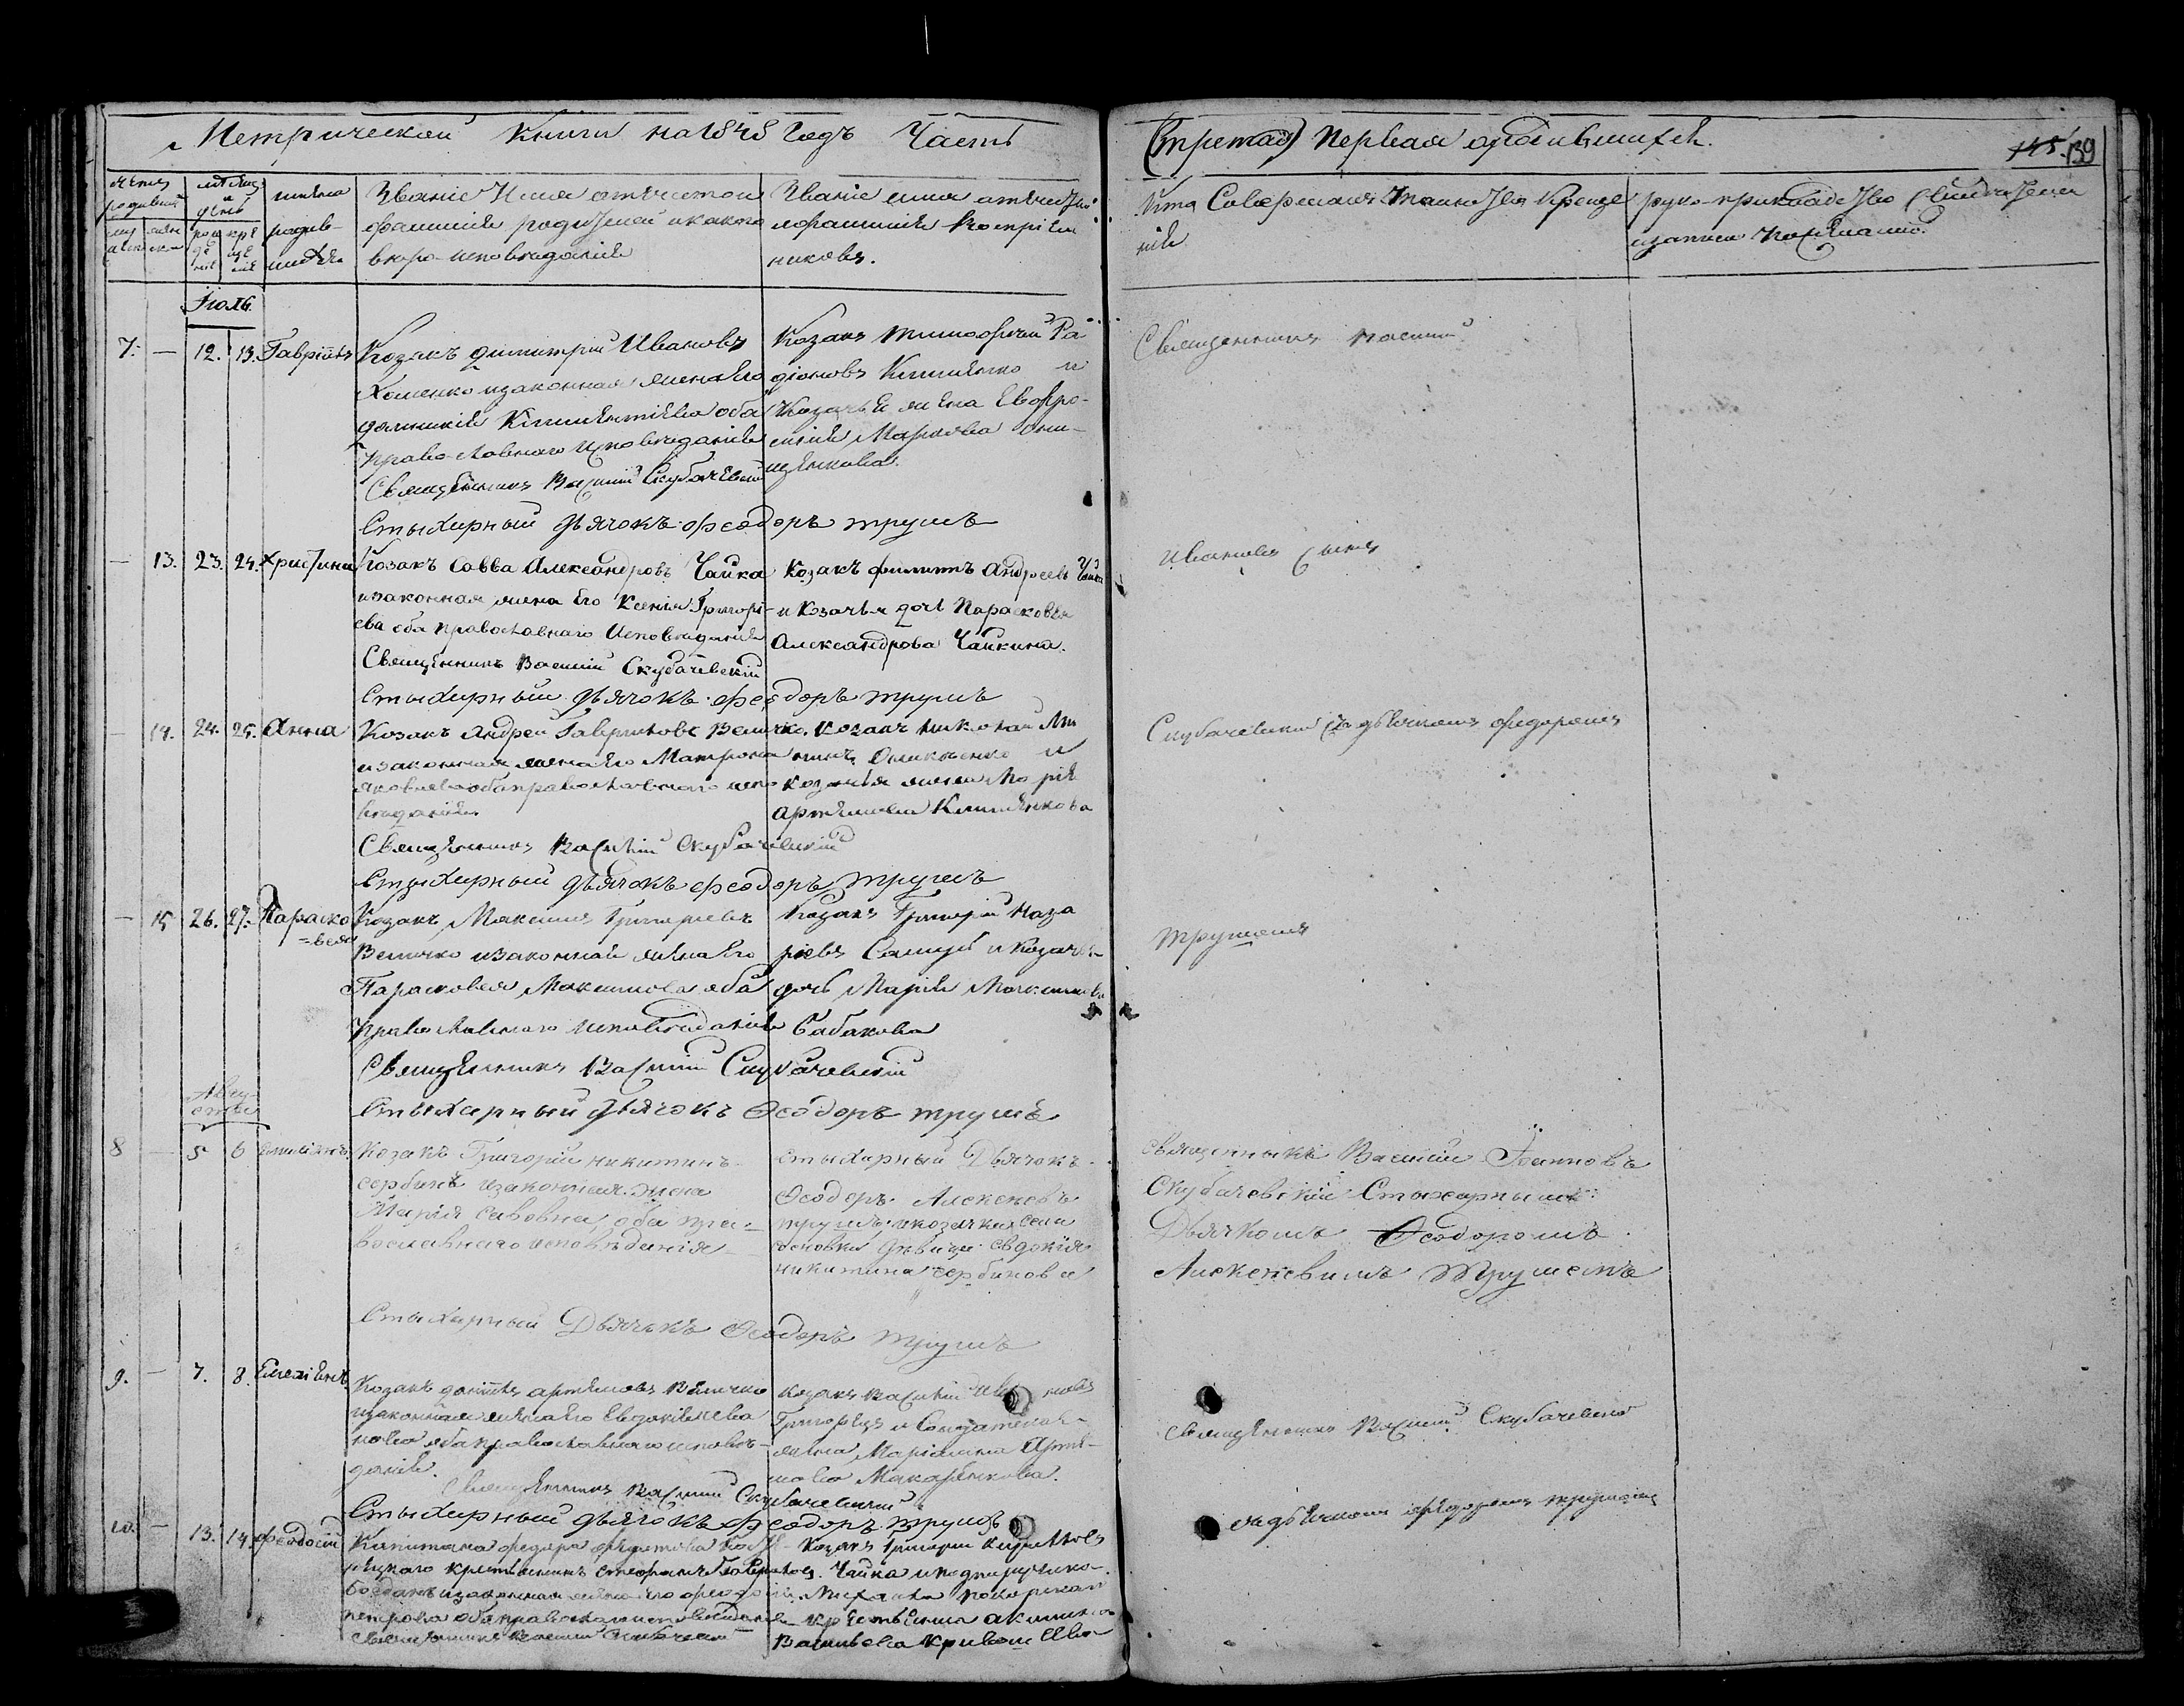 Метрической Книги на 1848 Годъ Часть
(третая) Первая о родившихся.
145. 139
Званіе Имя отчество и
фамилія родителей и какого
вѣро-исповѣданія
Званіе имя отчество
и фамилія воспріем
никовъ.
Кто Совершалъ таинство Креще
нія
руко-прикладство свидѣтелей
записи по желанію.
имена
родив-
шихся
мѣсяцъ
и
день
Іюль
7. — 12. 13. Гавріилъ
Козакъ Димитрій Ивановъ
Хоменко и законная жена его
Клементіева оба
право славнаго исповѣданія
Священникъ Василій Скубачевскій
Стыхирный Дьячокъ Феодоръ Трушъ
Козакъ Тимофей Ра
діоновъ Клименко и
Козачья жена Евфро-
синія Маркова
Священникъ Василій
— 13. 23. 24. Христина
Козакъ Савва Александровъ Чайка
и законная жена его Ксенія Григорі-
ева оба православнаго Исповѣданія
Священникъ Василій Скубачевскій
Стыхирный Дьячокъ Феодоръ Трушъ
Козакъ Филиппъ Андреевъ Чайка
и Козачья дочь Парасковья
Александрова Чайкина.
Ивановъ сынъ
— 14. 24. 25. Анна
Козакъ Андрей Гавриловъ Величко
и законная жена его Матрона
Яковлева оба православнаго испо
вѣданія
Священникъ Василій Скубачевскій
Стыхирный Дьячокъ Феодоръ Трушъ
Козакъ Николай
и
козачья жена Марія
Артемова Клименкова
Скубачевскій съ дьячкомъ Федоромъ
— 15 26. 27. Параско
=вея
Козакъ Максимъ Григорьевъ
Величко и законная жена его
Парасковея Максимова оба
Православнаго исповѣданія
Священникъ Василій Скубачевскій
Стыхарный Дьячокъ Ѳеодоръ Трушъ
Козакъ Григорій Наза
ріевъ Самусь и Козачья
дочь Марія Максимова
Бабакова
Трушемъ
Авгу-
стъ
8 — 5 6 Емиліянъ.
Козакъ Григорій Никитинъ
Сербинъ и законная жена
Марія Савовна, оба пра-
вославнаго исповѣданія
Стыхирный Дьячокъ Ѳеодоръ Трушъ
Стыхарный Дьячокъ
Ѳеодоръ Алексеевъ
Трушъ и козачка села
дѣвица Евдокія
Никитина Сербинова
Священникъ Василій Іоанновъ
Скубачевскій Стыхарнымъ
Дьячкомъ Ѳеодоромъ
Алексеевымъ Трушемъ
9. — 7. 8. Емеліянъ.
Козакъ Даніилъ Артемовъ Величко
и законная жена его Евдокія
нова оба православнаго исповѣ-
данія.
Священникъ Василій Скубачевскій
Стыхирный Дьячокъ Феодоръ Трушъ
Козакъ Василій новъ
Григорецъ и Солдатская
жена Маріамна Артѣ-
мова Макаренкова.
Священникъ Василій Скубачевскій
10. — 13. 14. Феодосій
Капитана Федора
крестьянинъ Стефанъ Гавриловъ
и законная жена его Феодосія
Петрова оба православнаго исповѣданія
Священникъ Василій Скубачевскій
Козакъ Григорій Кириловъ
Чайка и подпоручика
Михаила
крестьянка Акилина
Васильева
съ дьячкомъ Федоромъ Трушемъ